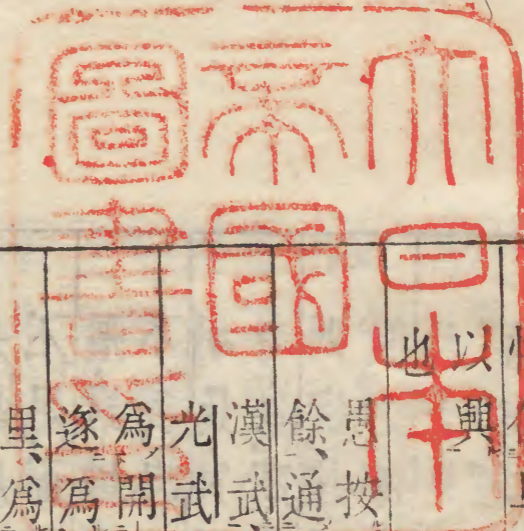 大日本
帝國
圖書印
以興
也
愚按
餘、通
漢武
光武
爲開
遂爲
里、爲